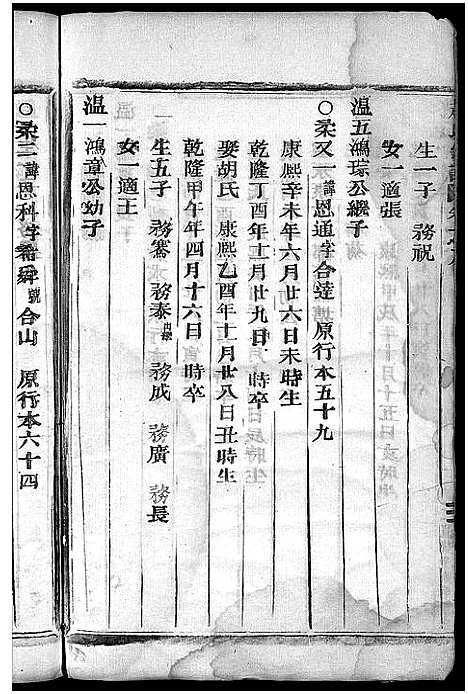 生一子 務祝
女一適張
溫五鴻琮公繼子
○柔又一諱恩通字合達 原行本五十九
康熙辛未年六月廿六日未時生
乾隆丁酉年十一月廿九日 時卒
娶胡氏 康熙乙酉年十一月廿八日丑時生
乾隆甲午年四月十六日 時卒
生五子 務騫 務泰出繼 務成 務廣 務長
女一適王
溫一鴻章公幼子
○柔三諱恩科字希舜號合山 原行本六十四